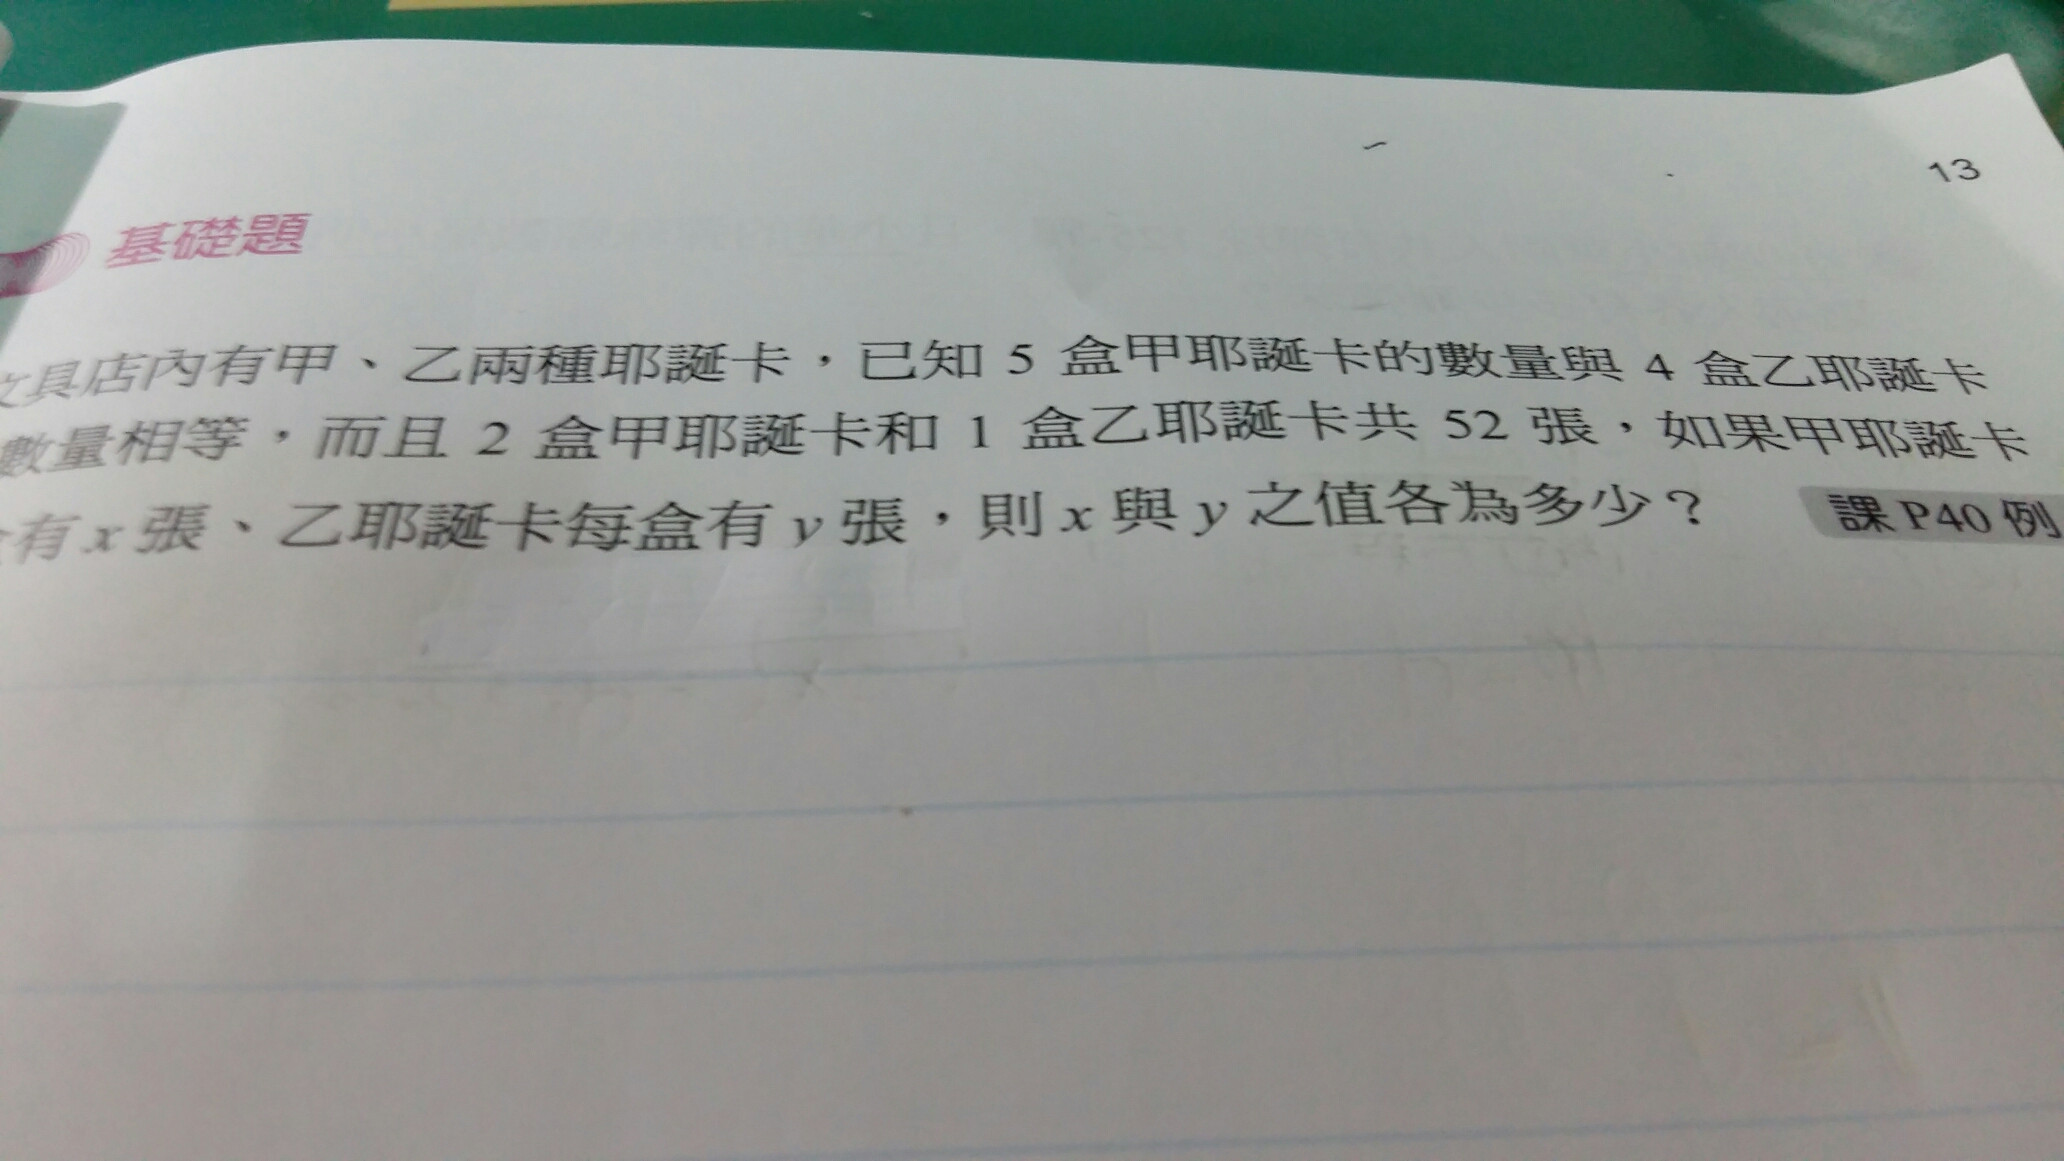 13
基礎題
文具店內有甲、乙兩種耶誕卡，已知 5 盒甲耶誕卡的數量與 4 盒乙耶誕卡
數量相等，而且 2 盒甲耶誕卡和 1 盒乙耶誕卡共 52 張，如果甲耶誕卡
有 x 張、乙耶誕卡每盒有 y 張，則 x 與 y 之值各為多少？ 課 P40 例